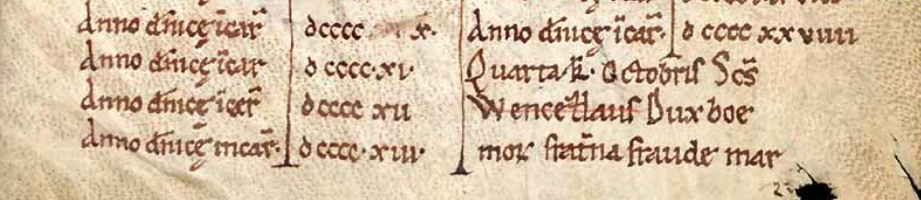 Anno dn̄icę īcar̄ dcccc x.
Anno dn̄icę īcar̄ dcccc·xı·
Anno dn̄icę īcar̄ dcccc xıı
Anno dn̄icę incar̄· dcccc·xııı·
Anno dn̄icę īcar̄· dcccc xxvıııı
Quarta·k̄· Octobris Sc̄s
Wencezlaus Dux boe
mor̄ frat̄na fraude mar